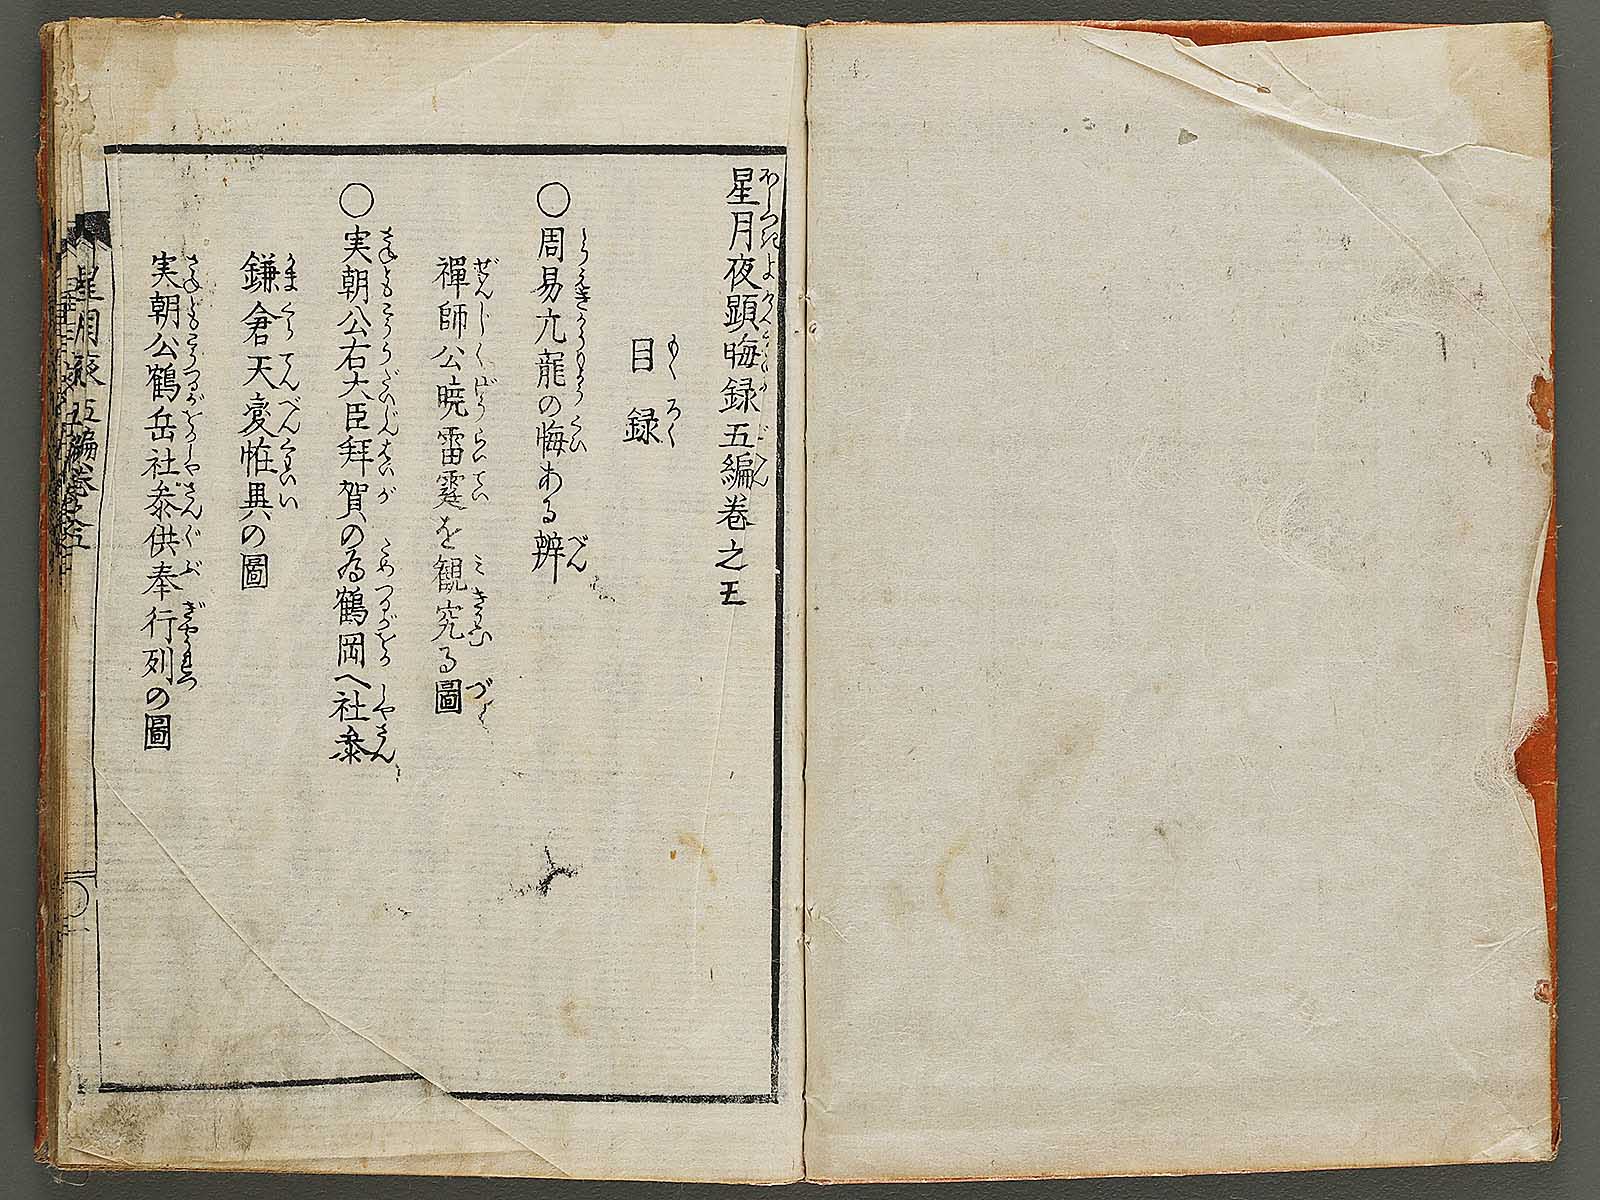 星月夜顕晦録五編巻之五
目録
○周易亢龍の悔ある辨
禪師公暁雷霆を観究る圖
○実朝公右大臣拜賀の為鶴岡へ社参
鎌倉天変恠異の圖
実朝公鶴岳社参供奉行列の圖
星月夜五編巻之五